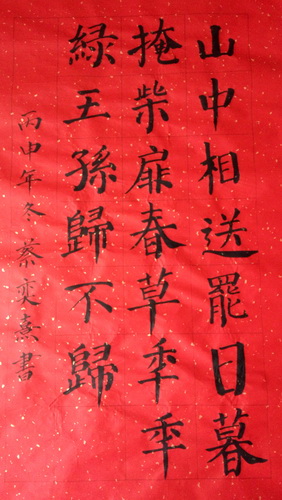 山中相送罷日暮
掩柴扉春草秊秊
緑王孫歸不歸
丙申年冬蔡奕熹書